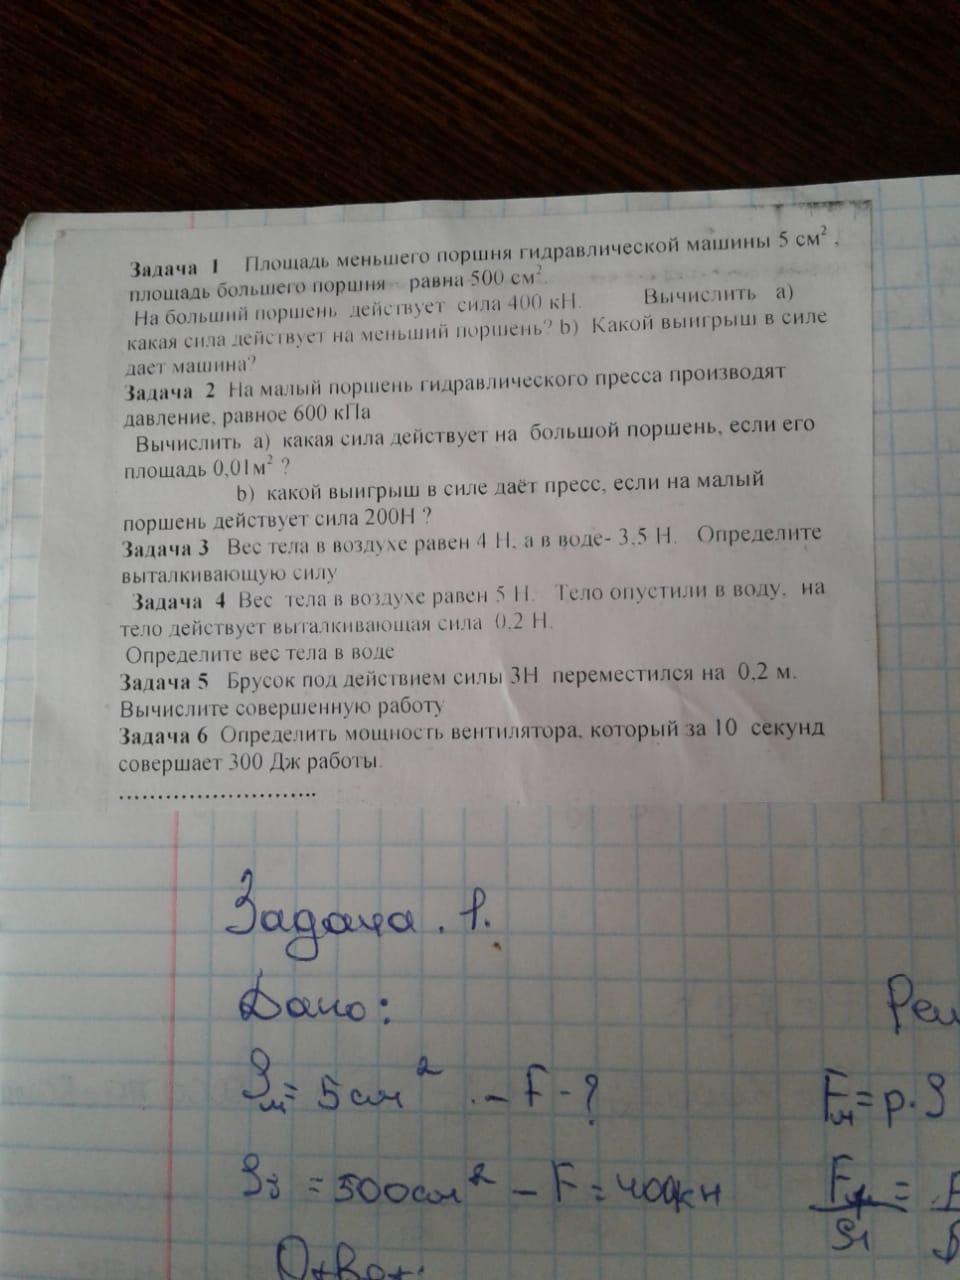 Задача 1 Площадь меньшего поршня гидравлической машины 5 см² ,
площадь большего поршня равна 500 см².
На больший поршень действует сила 400 кН. Вычислить а)
какая сила действует на меньший поршень? b) Какой выигрыш в силе
дает машина?
Задача 2 На малый поршень гидравлического пресса производят
давление, равное 600 кПа
Вычислить а) какая сила действует на большой поршень, если его
площадь 0,01м² ?
b) какой выигрыш в силе даёт пресс, если на малый
поршень действует сила 200Н ?
Задача 3 Вес тела в воздухе равен 4 Н, а в воде- 3,5 Н. Определите
выталкивающую силу
Задача 4 Вес тела в воздухе равен 5 Н. Тело опустили в воду, на
тело действует выталкивающая сила 0,2 Н.
Определите вес тела в воде
Задача 5 Брусок под действием силы 3Н переместился на 0,2 м.
Вычислите совершенную работу
Задача 6 Определить мощность вентилятора, который за 10 секунд
совершает 300 Дж работы.
..........................
Задача. 1.
Дано: Реш
Sм = 5 см² - F - ? Fм = p · S
= 500см² - F = 400кН
Ответ: